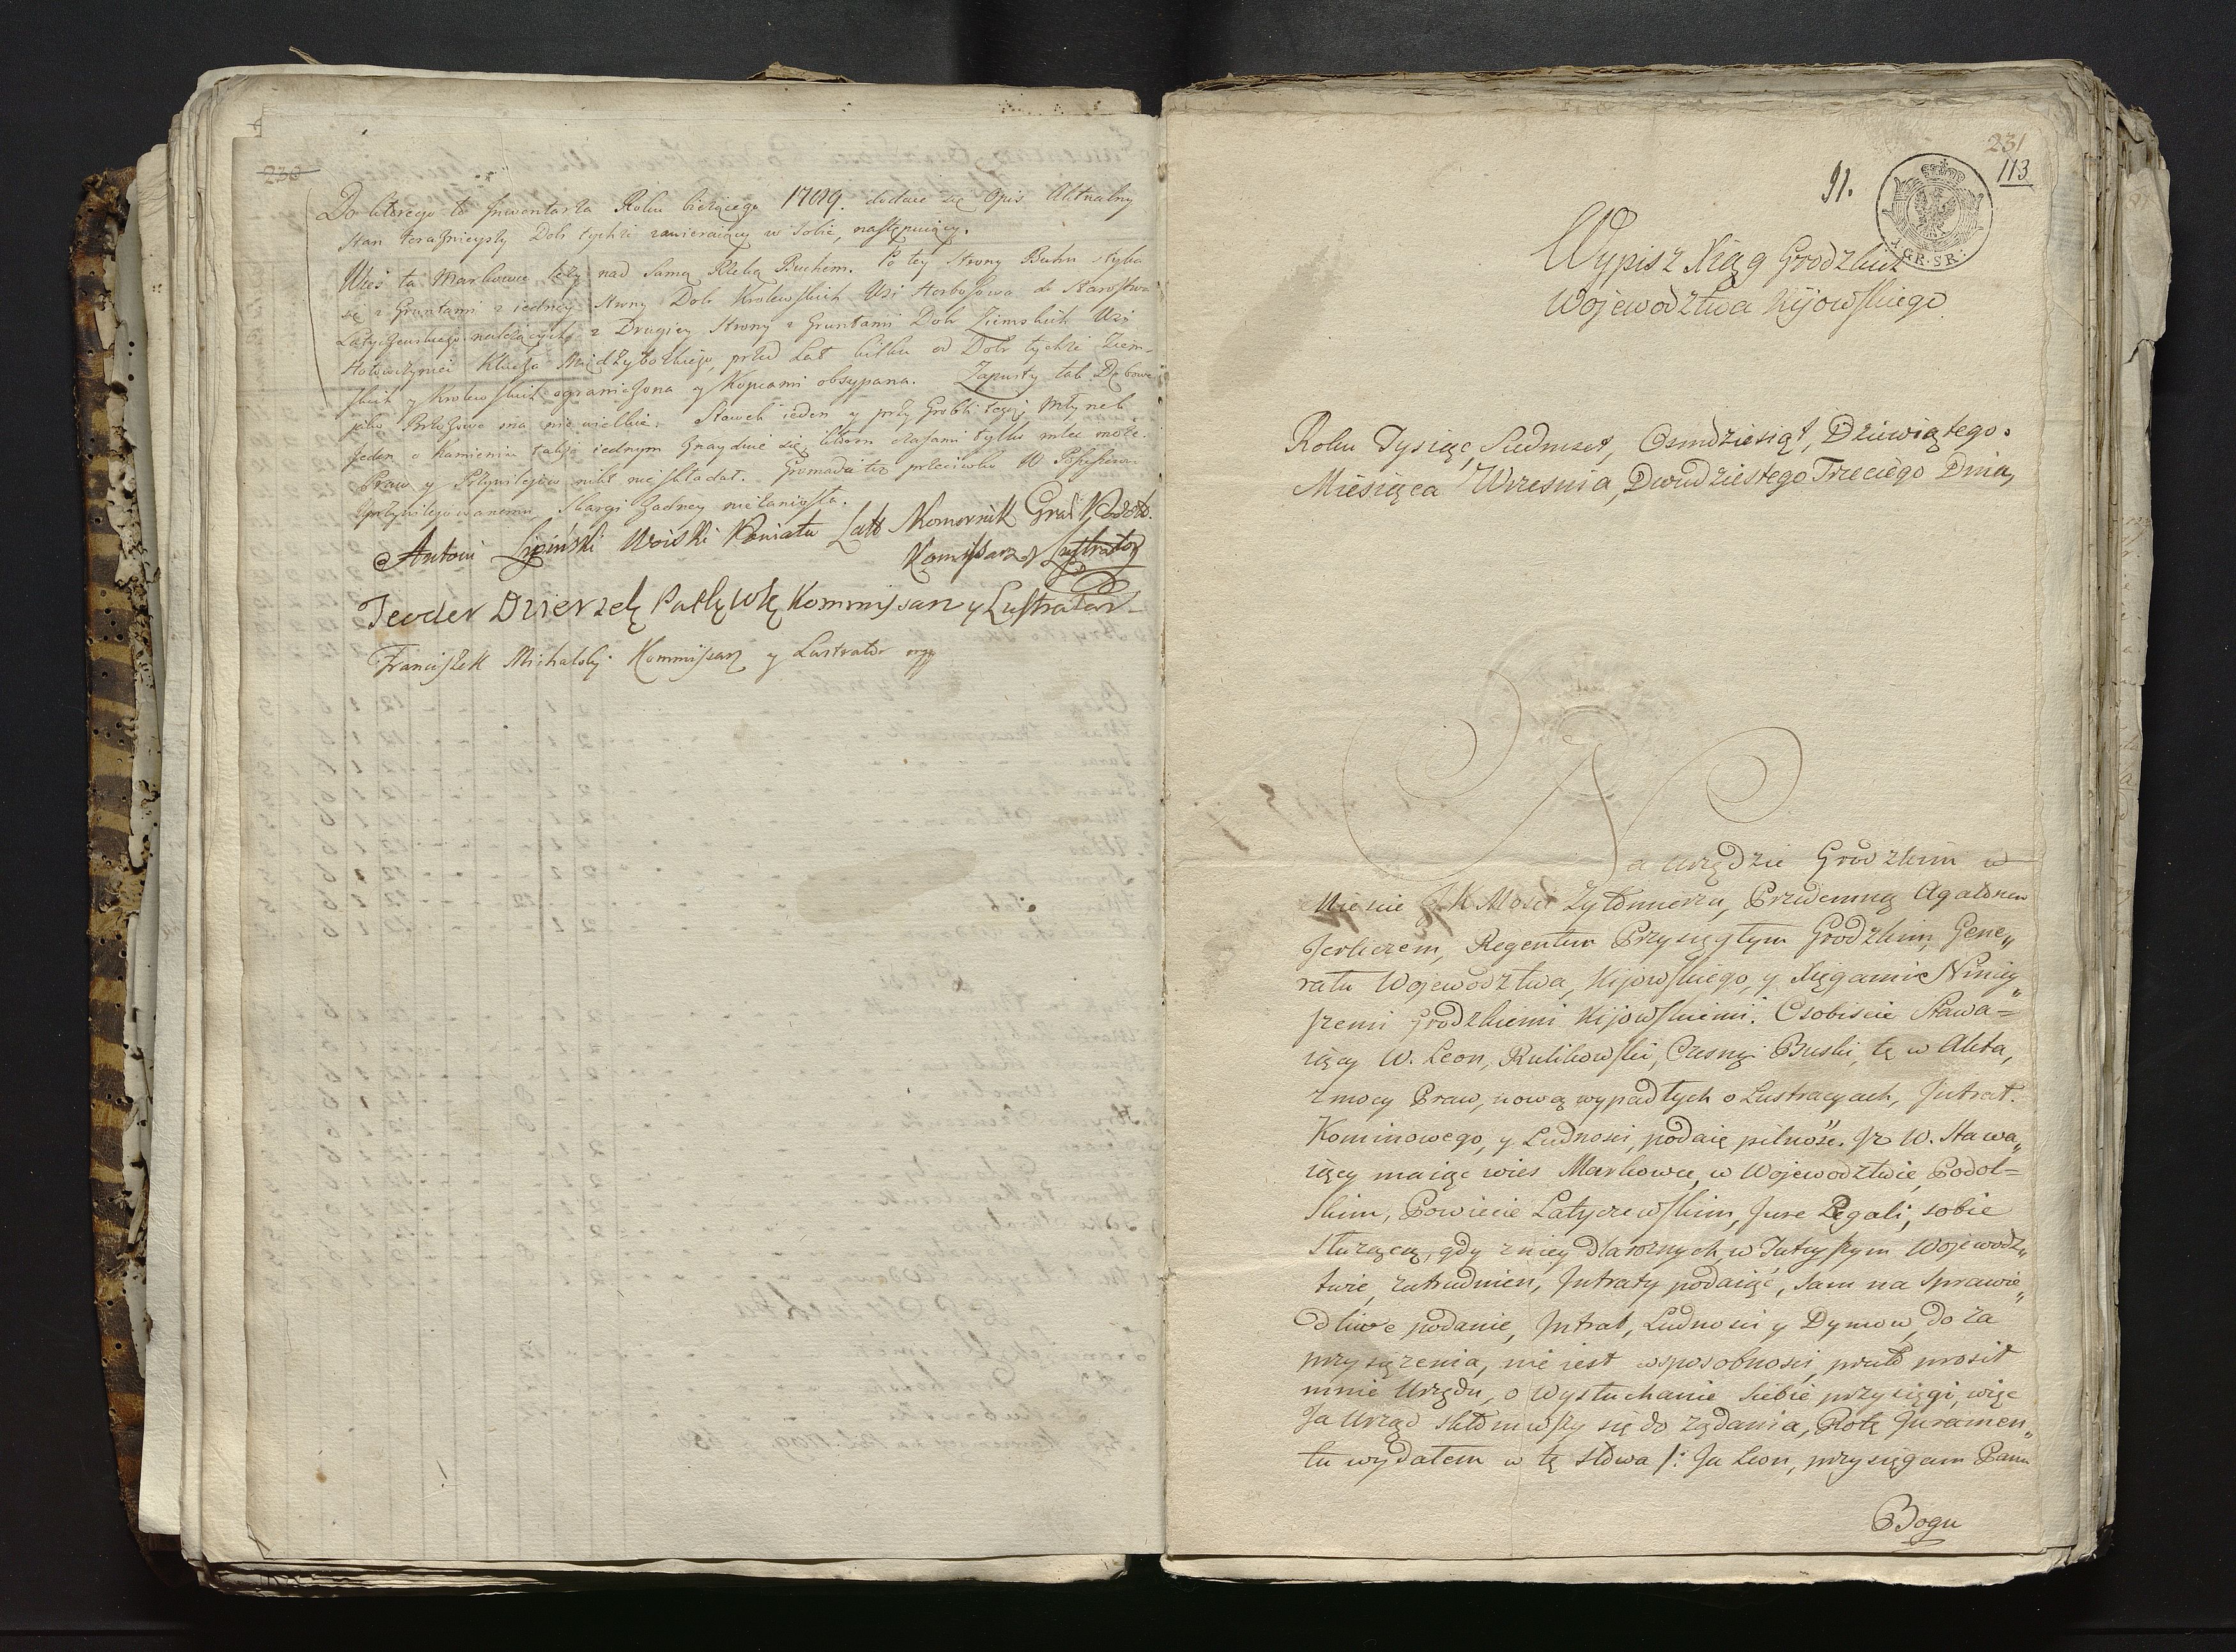 230
Do ktorego to Jnwentarza Roku bieżącego 1789. dodaie się Opis Aktualny
Stan teraznieyszy Dobr tychże zawieraiący w sobie, następuiący.
Wieś ta Markowce leży nad samą Rzeką Buchem. Po tey strony Buhu styka
się z Gruntami z iedney strony Dobr Krolewskich Wsi do Starostwa
Latyczewskiego należących z Drugiey strony z Gruntami Dobr Ziemskich Wsi
Hołowczyniec Klucza Międzyboskiego, przed Lat kilku od Dobr tychże Ziem-
skich y Krolewskich ograniczona y Kopcami obsypana. Zapusty tak Dębowe
jako Brzozowe ma nie wielkie. Stawek ieden y przy Grobli tegoż Młynek
jeden o Kamieniu także iednym znayduie się, ktoren czasami tylko mleć może.
Praw y Przywilejow nikt nie składał. Gromada też przeciwko W Possessorowi
Uprzywilejowanemu Skargi żadney nie zaniosła.
Antoni Lipiński Woiski Powiatu Komornik
Kommissarz y Lustrator
Teodor Dzierzek Kommissarz y Lustrator
Franciszek Michalski Kommissarz y Lustrator
231
91.
113
GR. SR.
Wypis z Xiąg Grodzkich
Wojewodztwa Kijowskiego.
Roku Tysiąc Siedmset, Osmdziesiąt, Dziewiątego.
Miesiąca Wrzesnia, Dwudziestego Trzeciego Dnia,
Na Urzędzie Grodzkim w
Miescie J. K. Mosci Zytomierzu, Przedemną Agatonem
Jerliczem, Regentem Przysięgłym Grodzkim, Gene„
rału Wojewodztwa, Kijowskiego, y Xięgami Niniey„
szemi Grodzkiemi Kijowskiemi. Osobiscie Stawa=
iący W. Leon, Rulikowski, Czesnik Buski, tę w Akta,
z mocy Praw, nowo wypadłych o Lustracyach, Jntrat.
Kominowego, y Ludnosci, podaię pilność. Jż W. Stawa„
iący maiąc wies Markowce, w Wojewodztwie, Podol=
skim, Powiecie Latyczewskim, Jure Regali, sobie
służącą, gdy z niey dla rożnych w Tuteyszym Wojewodz„
twie, zatrudnien, Jntraty podaiąć, sam na Sprawie„
dliwe podanie, Jntrat, Ludnosci y Dymow, do za
przysiężenia, nie iest w sposobnosci, przeto prosił
mnie Urzędu, o Wysłuchanie Siebie przysięgi, więc
Ja Urząd skłoniwszy się do żądania, Rotę Juramen„
tu wydałem w tę słowa /: Ja Leon, przysięgam Panu
Bogu